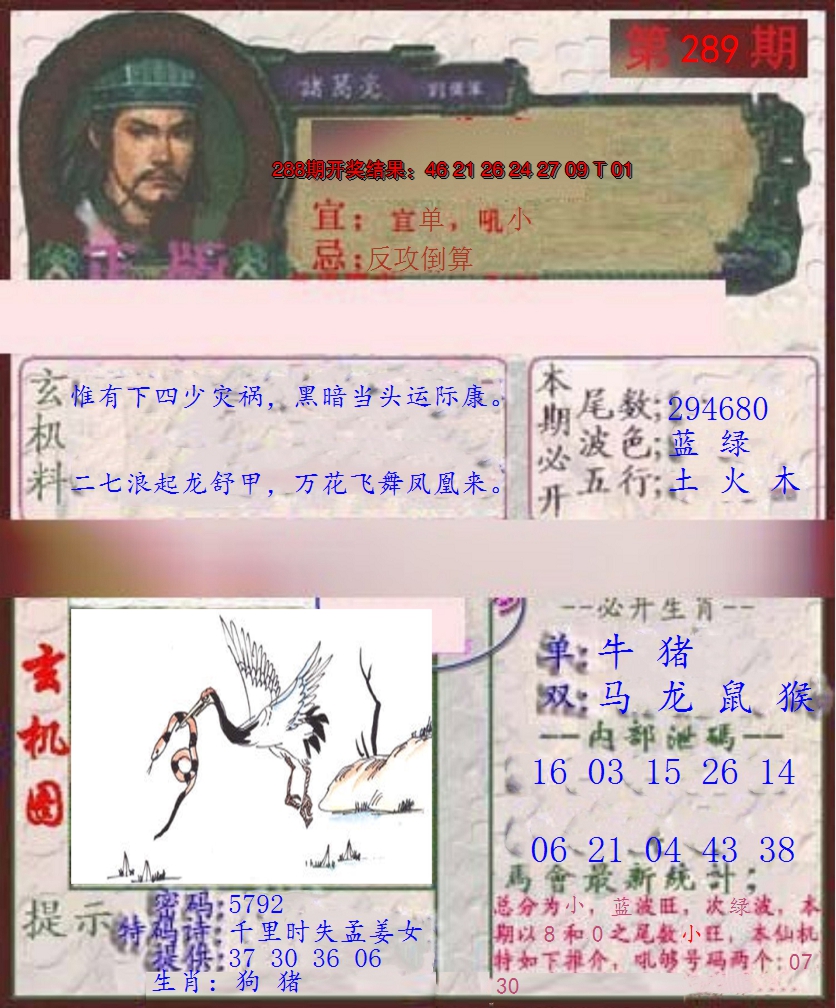 第 289 期
諸葛亮
288期开奖结果：46 21 26 24 27 09 T 01
宜；宜单，吼小
忌；反攻倒算
正版
玄机料
惟有下四少灾祸，黑暗当头运际康。
二七浪起龙舒甲，万花飞舞凤凰来。
本期必开
尾数；294680
波色；蓝 绿
五行；土 火 木
玄机图
--必开生肖--
单；牛 猪
双；马 龙 鼠 猴
--内部泄碼--
16 03 15 26 14
06 21 04 43 38
馬會最新統計；
总分为小，蓝波旺，次绿波，本
期以8和0之尾数小旺，本仙机
特如下推介，吼够号码两个：07
30
提示
密码：5792
特码诗：千里时失孟姜女
提供：37 30 36 06
生肖：狗 猪